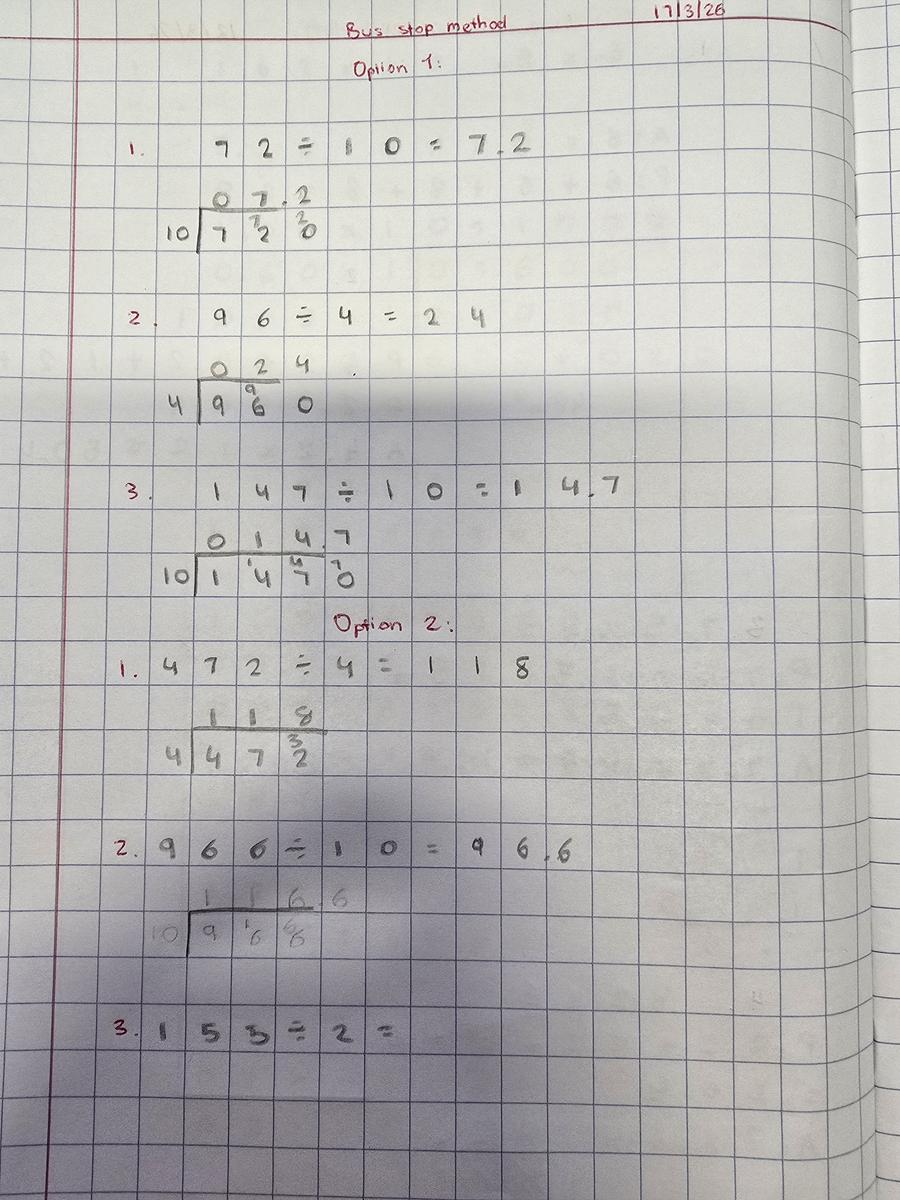 17/3/26
Bus stop method
Option 1:
1. 72 ÷ 10 = 7.2
07.2
10 7 ⁷2 ²0
2. 96 ÷ 4 = 24
024.
4 9 ⁹6 0
3. 147 ÷ 10 = 14.7
014.7
10 1 ¹4 ⁴7 ⁷0
Option 2:
1. 472 ÷ 4 = 118
118
4 4 7 ³2
2. 966 ÷ 10 = 96.6
116.6
10 9 ¹6 ⁶6
3. 153 ÷ 2 =